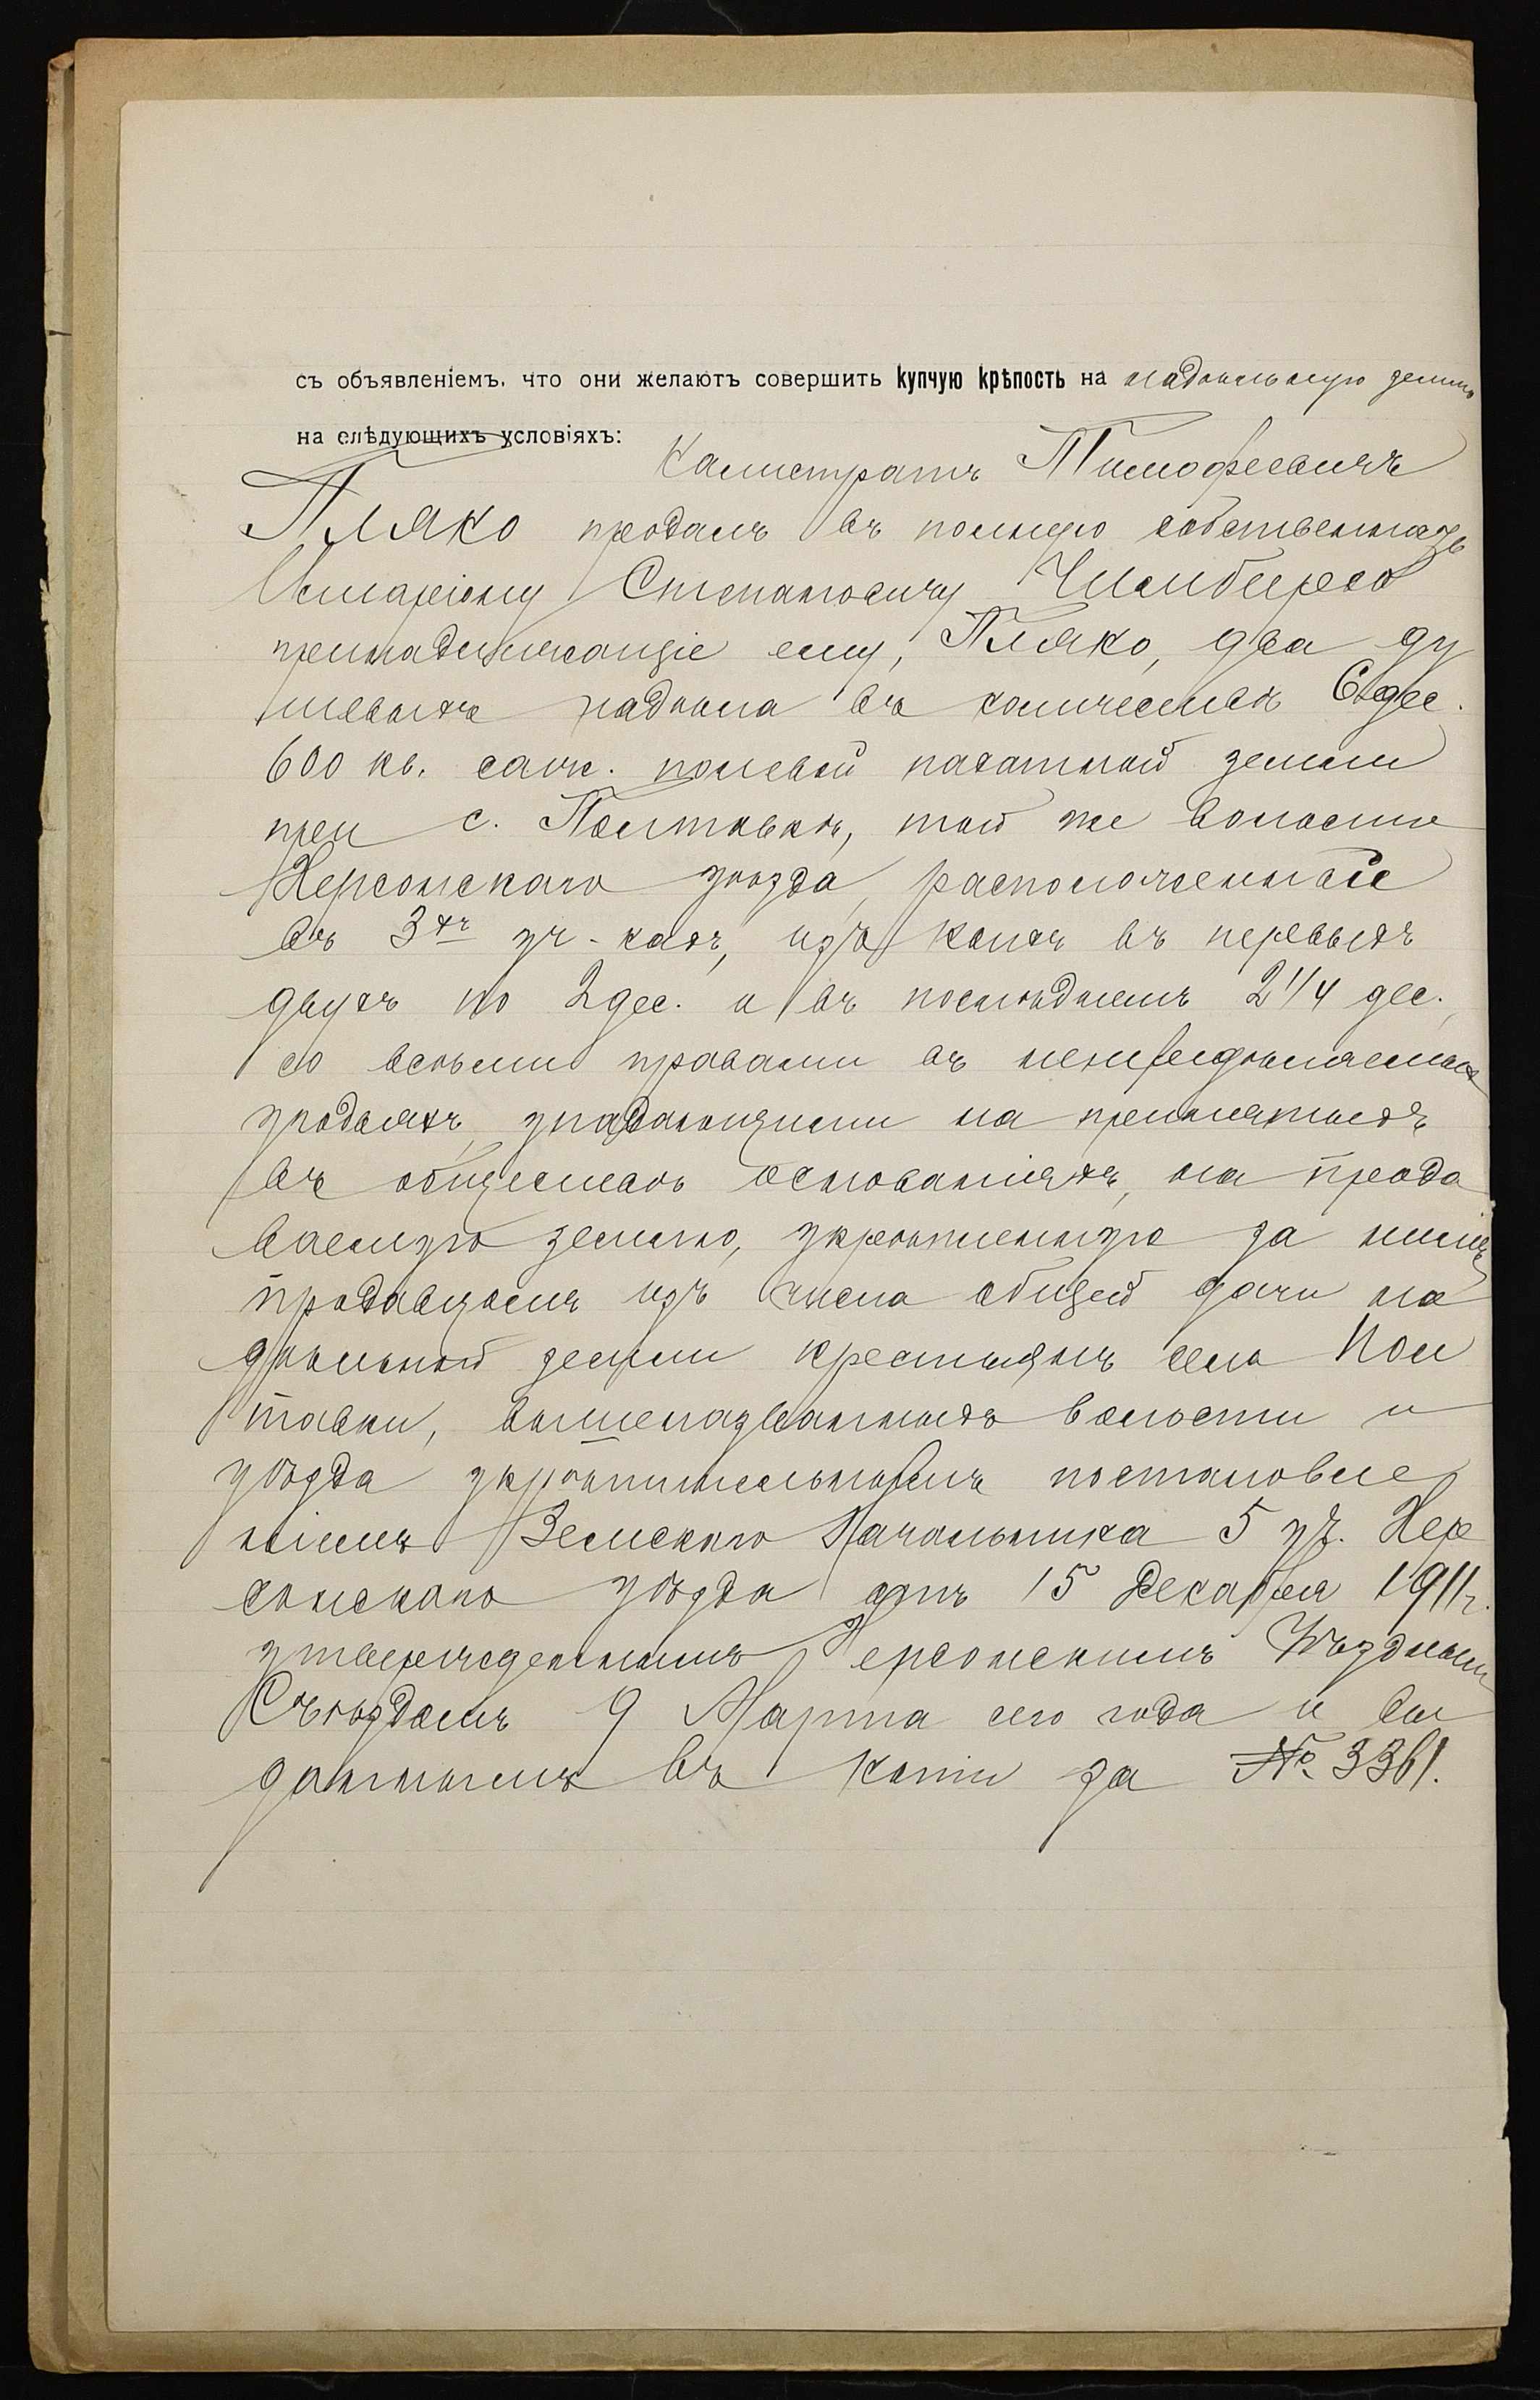 съ объявленіемъ, что они желаютъ совершить купчую крѣпость на надѣльную землю
на слѣдующихъ условіяхъ:
Калистратъ Тимофеевичъ
Пляко продалъ въ полную собственность
Степановичу
принадлежащіе ему, Пляко, два ду
шевыхъ надѣла въ количествѣ 6 дес.
600 кв. саж. полевой пахатной земли
при с. Полтавкѣ, той же волости
Херсонскаго уѣзда, расположенные
въ 3хъ уч-кахъ, изъ коихъ въ первыхъ
двухъ по 2 дес. и въ послѣднемъ 2 1/4 дес.,
со всѣми правами въ непередѣляемыхъ
угодьяхъ, упадающими на принятыхъ
въ обществѣ основаніяхъ, на прода
ваемую землю, укрѣпленную за нимъ
продавцомъ изъ числа общей дачи на
дѣльной земли крестьянъ села Пол
тавки, вышеназванныхъ волости и
уѣзда укрѣпительнымъ постановле
ніемъ Земскаго Начальника 5 уч. Хер
сонскаго уѣзда отъ 15 Декабря 1911 г.
утвержденнымъ Херсонскимъ Уѣзднымъ
Съѣздомъ 9 Марта сего года и вы
даннымъ въ копіи за № 3361.